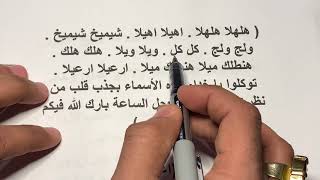 ( هلهلا هلهلا . اهيلا اهيلا . شيميخ شيميخ .
ولج ولج . كل كل . ويلا ويلا . هلك هلك .
هنطلك ميلا هنطلك ميلا . ارعيلا ارعيلا .
توكلوا يا خدام هذه الأسماء بجذب قلب من
نظر العجل الساعة بارك الله فيكم
)